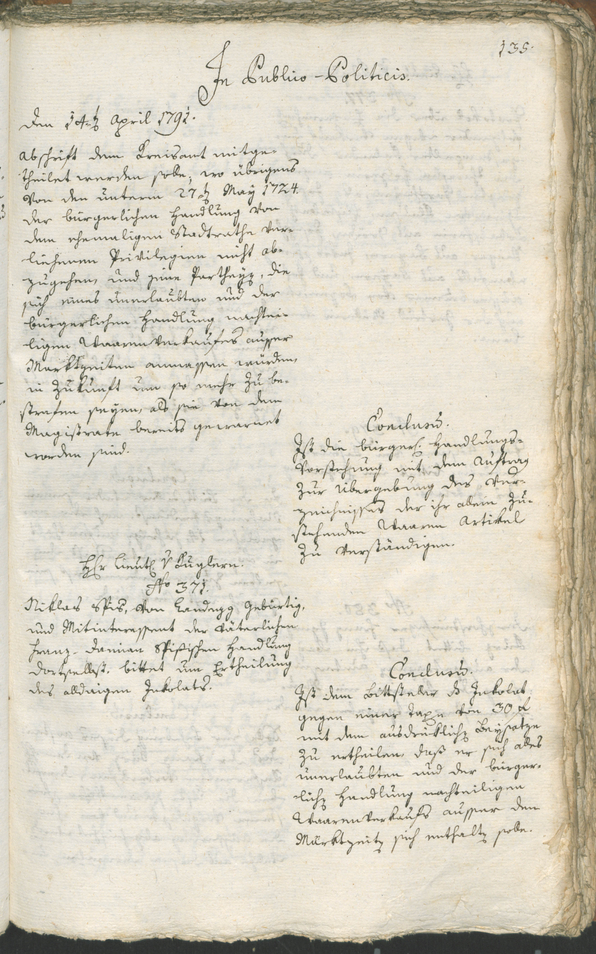 135.
In Publico-Politicis.
Den 14t April 1791.
Abschrift dem Kreisamt mitge-
theilet werden solle, wo übrigens
von den unterm 27t May 1724.
der bürgerlichen Handlung von
dem ehemaligen Stadtrathe ver-
liehenen Privilegien nicht ab-
zugehen, und jene Partheyen, die
sich eines unerlaubten und der
bürgerlichen Handlung nachthei-
ligen Waarenverkaufes ausser
Marktzeiten anmassen würden,
in Zukunft um so mehr zu be-
strafen seyen, als sie von dem
Magistrate bereits gewarnet
worden sind.
Conclusum.
Ist die bürgerl. Handlungs-
Vorstehung mit dem Auftrag
zur Übergebung des Ver-
zeichnisses der ihr allein zu-
stehenden Waaren Artikel
zu verständigen.
No 371.
Niklas Spis, von Landegg gebürtig,
und Mitinteressent der väterlichen
Franz-Damian Spißischen Handlung
dortselbst, bittet um Ertheilung
des alldaigen Inkolats.
Conclusum.
Ist dem Bittsteller das Inkolat
gegen einer Taxe von 30 f
mit dem ausdrücklichen Beysatze
zu ertheilen, daß er sich alles
unerlaubten und der bürger-
lichen Handlung nachtheiligen
Waarenverkaufs ausser den
Marktzeiten sich enthalten solle.